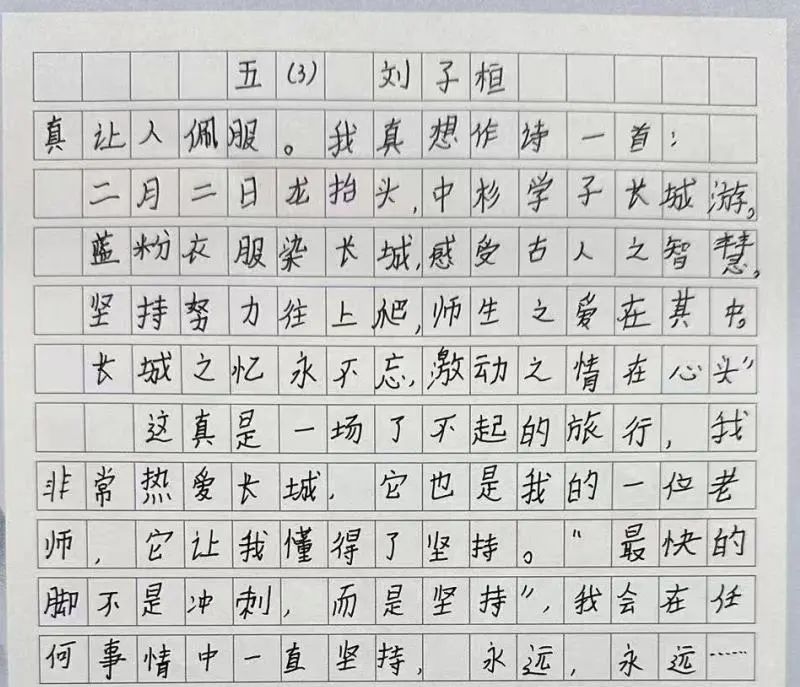 五(3) 刘子桓
真让人佩服。我真想作诗一首：
二月二日龙抬头,中杉学子长城游。
蓝粉衣服染长城,感受古人之智慧。
坚持努力往上爬,师生之爱在其中。
长城之忆永不忘,激动之情在心头”
这真是一场了不起的旅行，我
非常热爱长城，它也是我的一位老
师，它让我懂得了坚持。“最快的
脚不是冲刺，而是坚持”，我会在任
何事情中一直坚持，永远，永远……